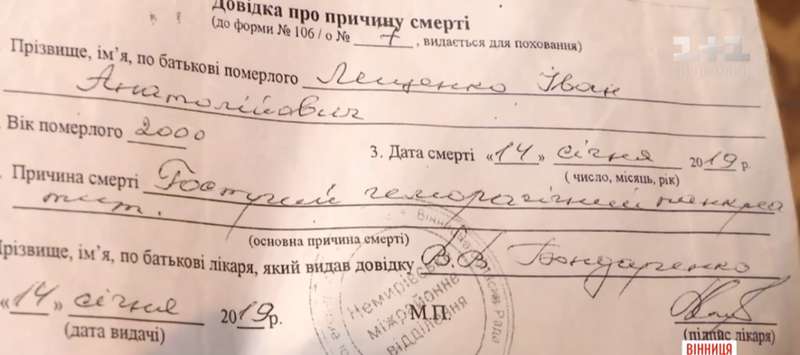 Довідка про причину смерті
(до форми № 106 / о № 7, видається для поховання)
1+1
. Прізвище, ім’я, по батькові померлого Лещенко Іван
Анатолійович
. Вік померлого 2000
3. Дата смерті «14» січня 2019 р.
( число, місяць, рік)
. Причина смерті Гострий геморагічний панкреа
тит.
(основна причина смерті)
Прізвище, ім’я, по батькові лікаря, який видав довідку В.В. Бондаренко
«14» січня 2019р.
М.П.
(дата видачі)
(підпис лікаря)
Немирівське
міжрайонне
відділення
ВІННИЦЯ